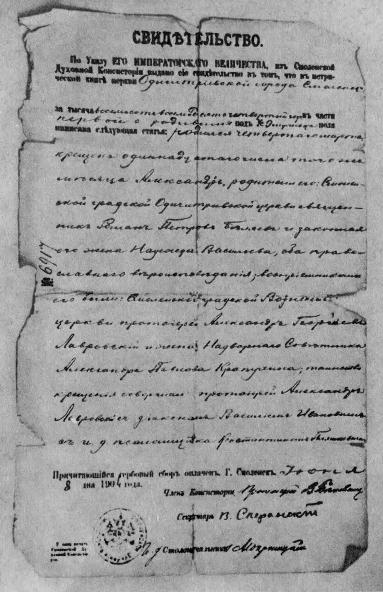 СВИДѢТЕЛЬСТВО.
По Указу ЕГО ИМПЕРАТОРСКАГО ВЕЛИЧЕСТВА, изъ Смоленской
Духовной Консисторіи выдано сіе свидѣтельство въ томъ, что въ метри-
ческой книгѣ церкви Одигитріевской города Смоленска
за тысяча восемьсотъ восемьдесятъ четвертый годъ въ части
первой о родившихся подъ № мужска пола
написана слѣдующая статья: родился четвертаго марта,
крещенъ одиннадцатаго числа того же
мѣсяца Александръ, родители его: Смолен-
ской градской Одигитріевской церкви священ-
никъ Романъ Петровъ Бѣляевъ и законная
его жена Надежда Васильева, оба право-
славнаго вѣроисповѣданія; воспріемниками
его были: Смоленской градской
церкви протоіерей Александръ Георгіевъ
Лавровскій и жена Надворнаго Совѣтника
Александра Павлова; таинство
крещенія совершалъ протоіерей Александръ
Лавровскій съ діакономъ Василіемъ
и и. д. псаломщика Константиномъ
№ 6917
Причитающійся гербовый сборъ оплаченъ. Г. Смоленскъ. Іюня
8 дня 190 года.
Членъ Консисторіи Протоіерей
Секретарь В. Сперанскій
И. д. Столоначальника